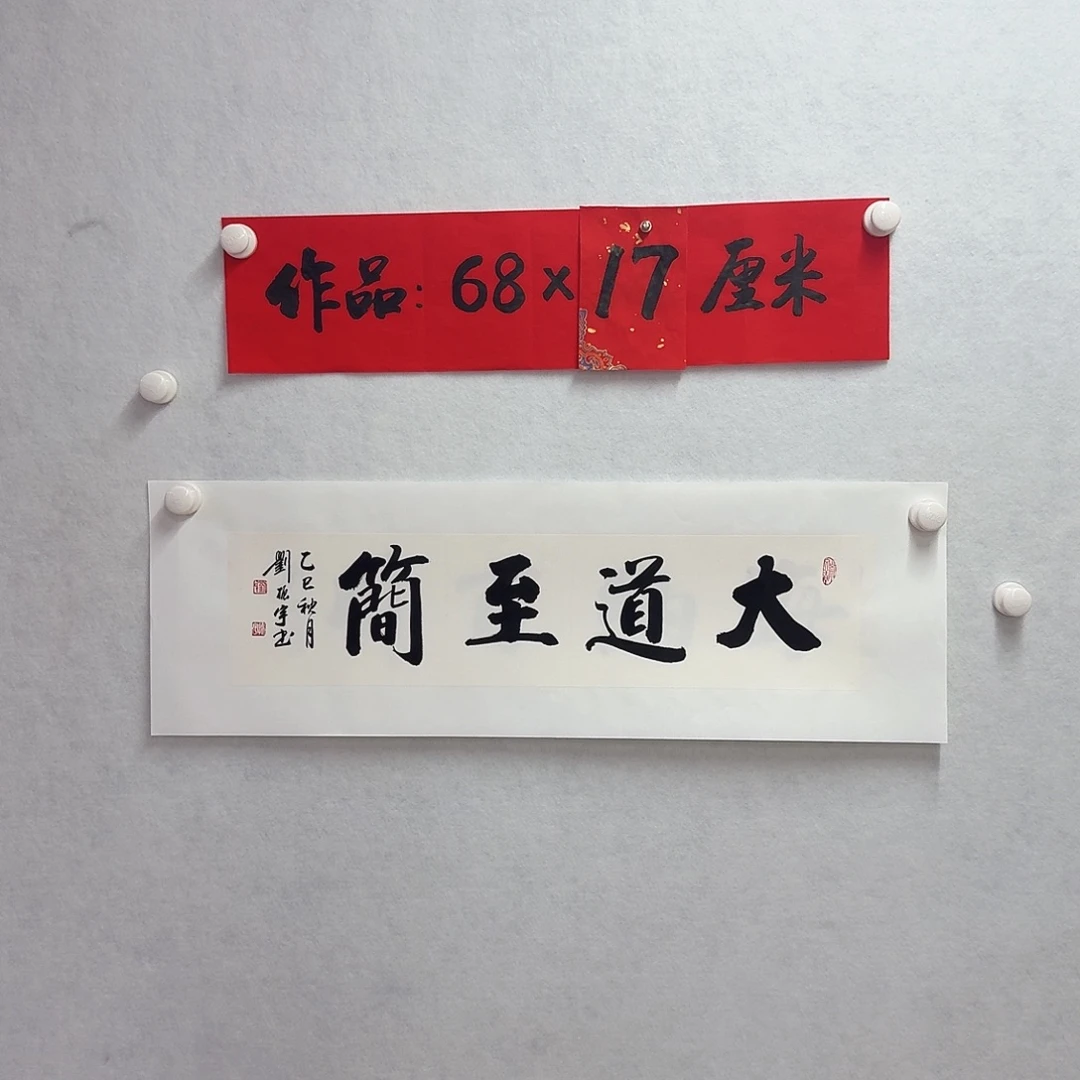 作品：68×17厘米
大道至簡
乙巳秋月
劉振宇书